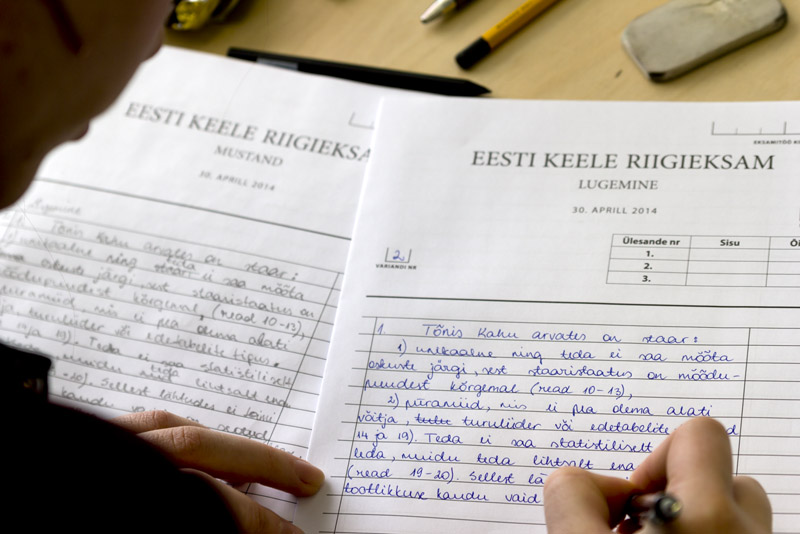 EESTI KEELE RIIGIEKSA
MUSTAND
30. APRILL 2014
Tõnis Kahu arvates on staar:
unikaalne ning teda ei saa mõõta
oskuste järgi, sest staaristaatus on
mõõdupuudest kõrgemal (read 10-13),
püramiid, mis ei pea olema alati
turuliider või edetabelite tipus.
14 ja 19). Teda ei saa statistiliselt
muidu teda lihtsalt ena
-20). Sellest lähtudes ei toimi
kaudu vaid on
EKSAMITÖÖ
EESTI KEELE RIIGIEKSAM
LUGEMINE
30. APRILL 2014
2
VARIANDI NR
Ülesande nr Sisu Õi
1.
2.
3.
1. Tõnis Kahu arvates on staar:
1) unikaalne ning teda ei saa mõõta
oskuste järgi, sest staaristaatus on mõõdu-
puudest kõrgemal (read 10-13),
2) püramiid, mis ei pea olema alati
võitja, turuliider või edetabelite d
14 ja 19). Teda ei saa statistiliselt
leda, muidu teda lihtsalt ena
(read 19-20). Sellest lä
tootlikkuse kaudu vaid